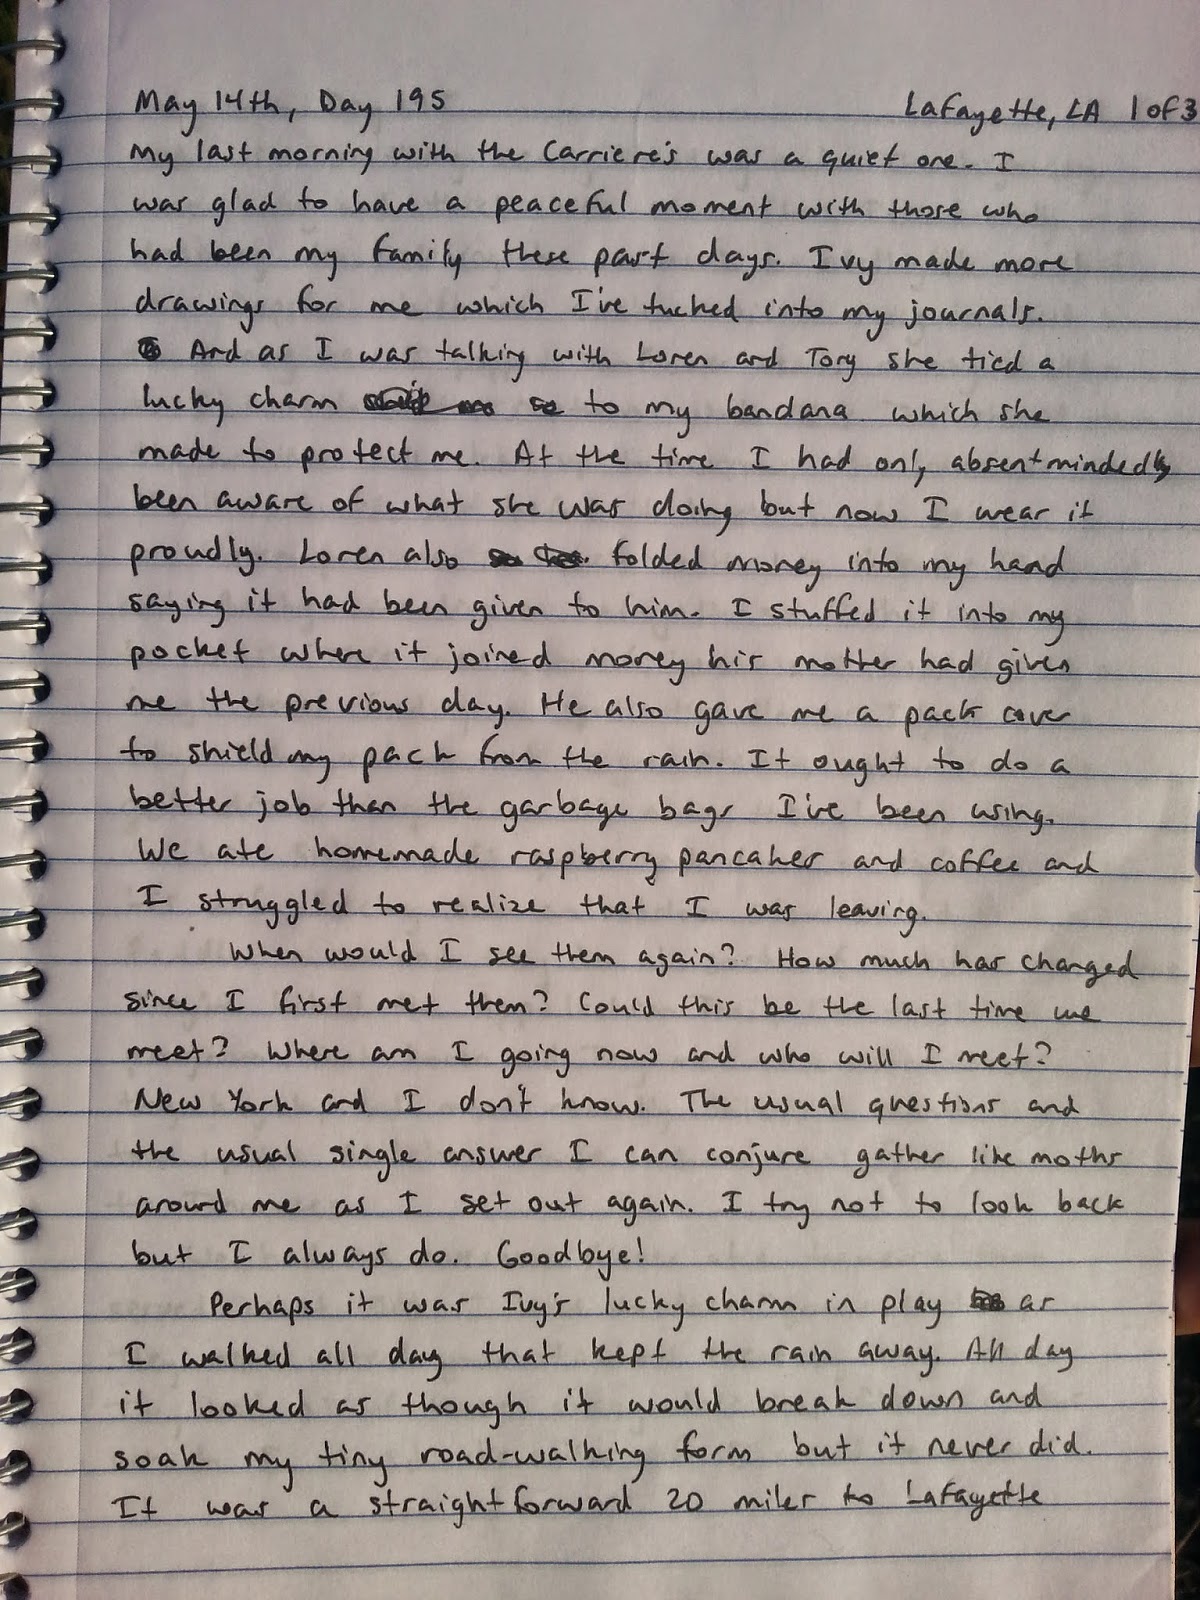 May 14th, Day 195 Lafayette, LA 1 of 3
My last morning with the Carriere's was a quiet one. I
was glad to have a peaceful moment with those who
had been my family these past days. Ivy made more
drawings for me which I've tucked into my journals.
And as I was talking with Loren and Tory she tied a
lucky charm to my bandana which she
made to protect me. At the time I had only absentmindedly
been aware of what she was doing but now I wear it
proudly. Loren also folded money into my hand
saying it had been given to him. I stuffed it into my
pocket where it joined money his mother had given
me the previous day. He also gave me a pack cover
to shield my pack from the rain. It ought to do a
better job than the garbage bags I've been using.
We ate homemade raspberry pancakes and coffee and
I struggled to realize that I was leaving.
When would I see them again? How much has changed
since I first met them? Could this be the last time we
meet? Where am I going now and who will I meet?
New York and I don't know. The usual questions and
the usual single answer I can conjure gather like moths
around me as I set out again. I try not to look back
but I always do. Goodbye!
Perhaps it was Ivy's lucky charm in play as
I walked all day that kept the rain away. All day
it looked as though it would break down and
soak my tiny road-walking form but it never did.
It was a straightforward 20 miles to Lafayette